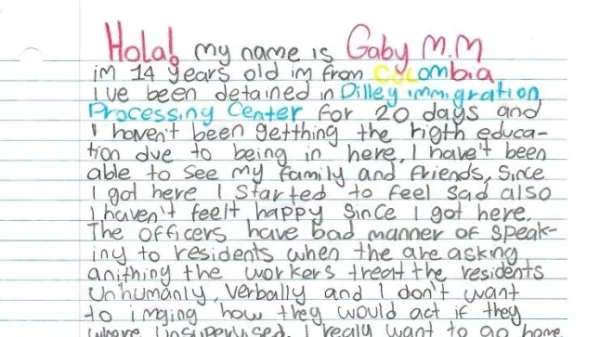 Hola! my name is Gaby M.M
im 14 years old im from COLombia
i've been detained in Dilley immigration
Processing Center for 20 days and
I haven't been getthing the rigth educa-
tion due to being in here, I have't been
able to see my family and friends, Since
I got here I Started to feel Sad also
I haven't feelt happy Since I got here.
The officers have bad manner of speak-
iny to residents when the are asking
anithing the workers treat the residents
unhumanly, verbally and I don't want
to imging how they would act if they
where unsupervised. I realy want to go home